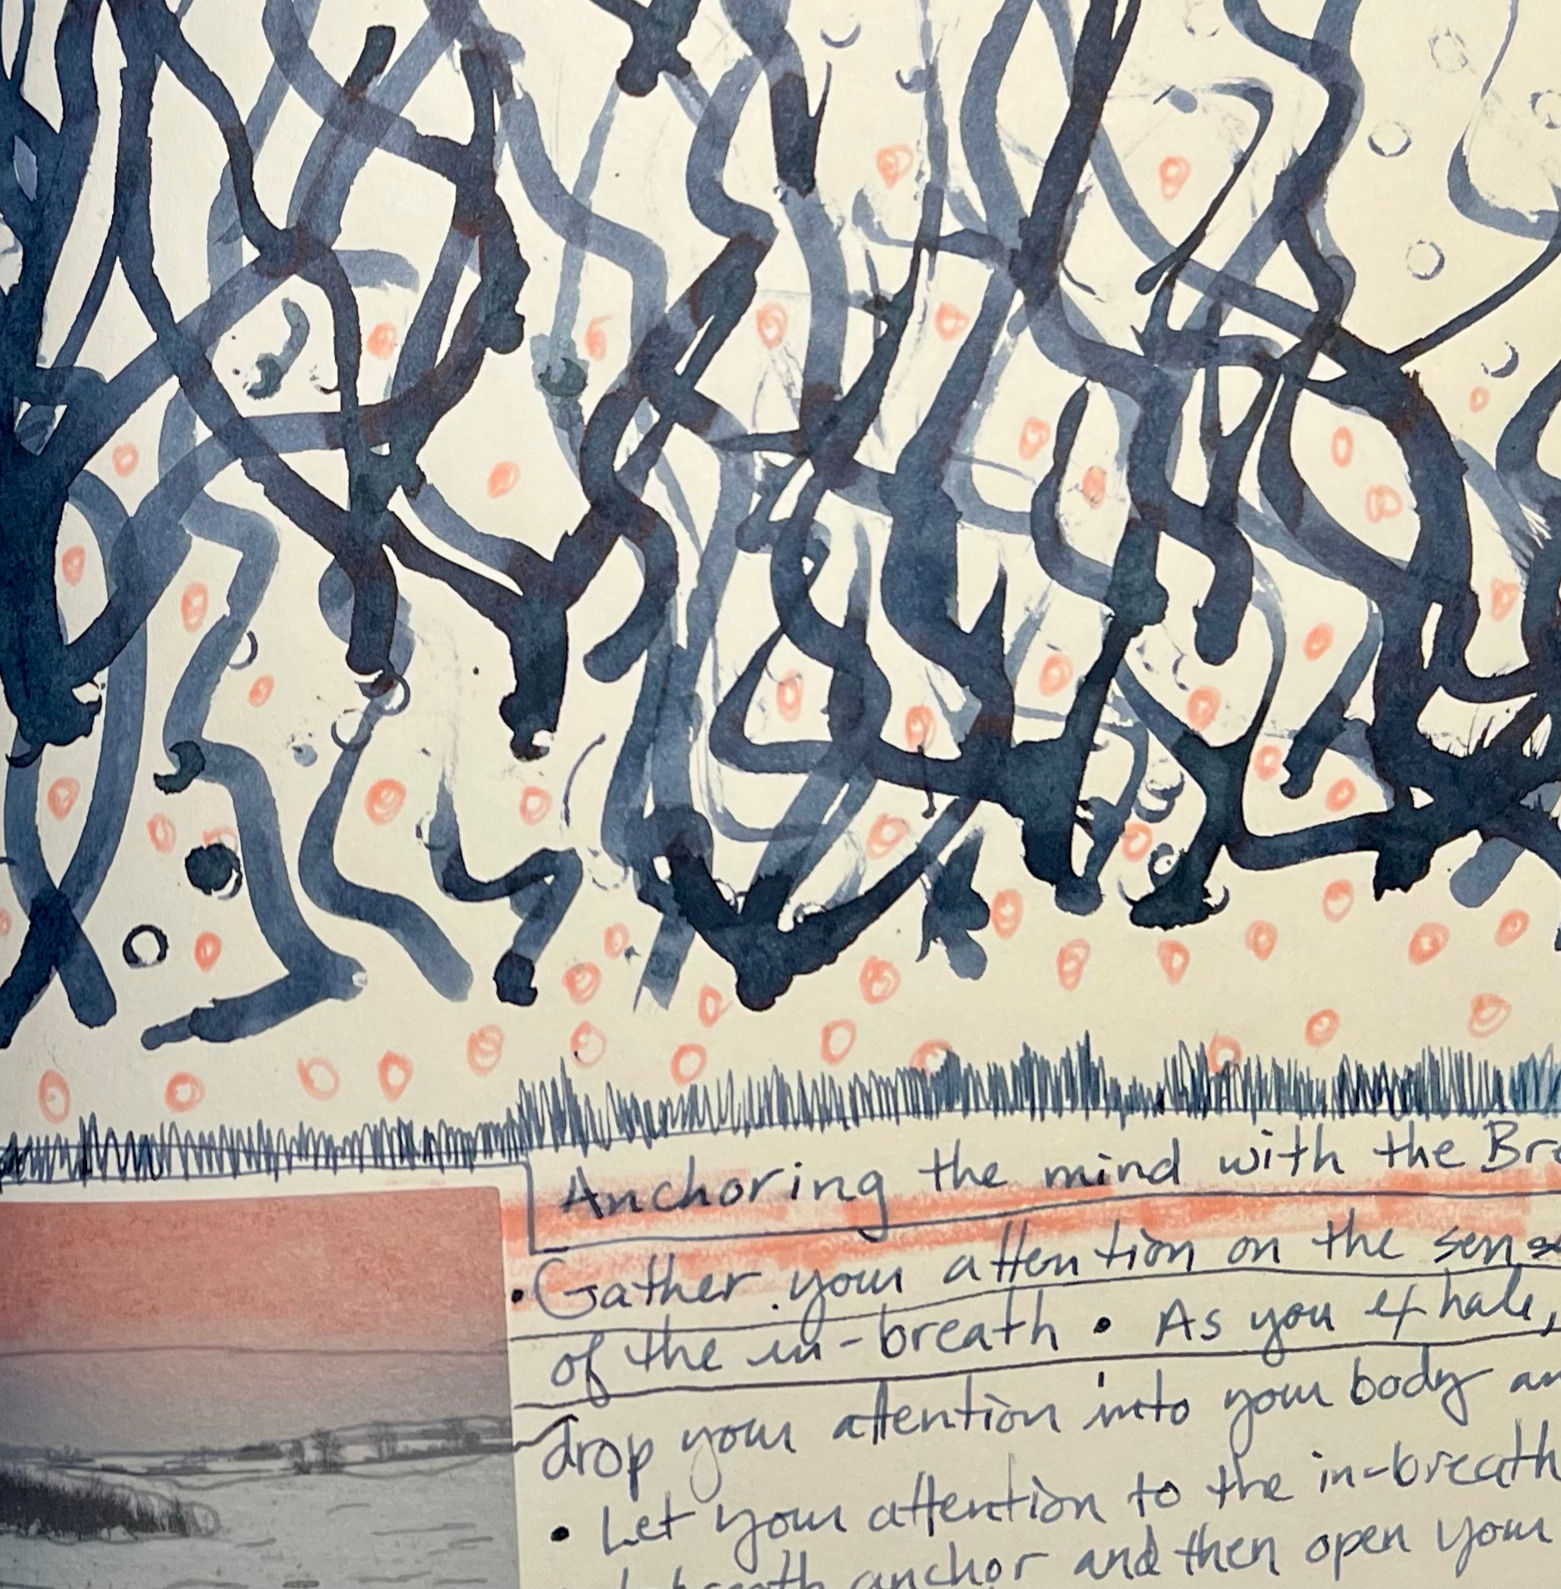 Anchoring the mind with the
• Gather your attention on the
of the in-breath • As you exhale,
drop your attention into your body
• Let your attention to the in-breath
breath anchor and then open your